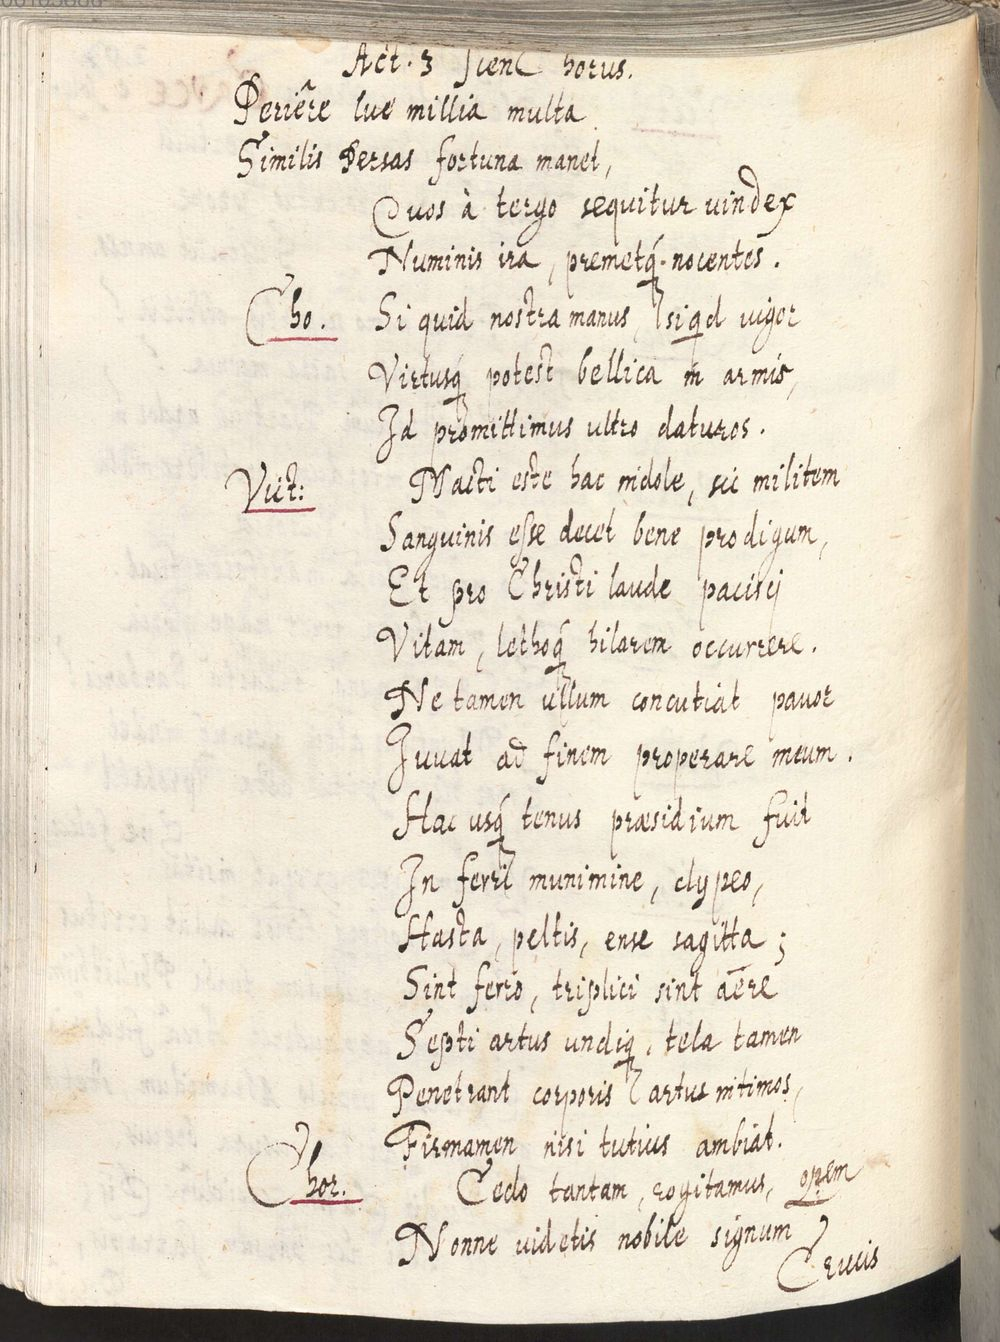 Act. 3 Scen C horus.
Periêre lue millia multa
Similis Persas fortuna manet,
Quos à tergo sequitur uindex
Numinis ira, premetq́; nocentes.
Cho. Si quid nostra manus, siqd uigor
Virtusq́; potest bellica in armis,
Id promittimus ultro daturos.
Vict: Macti este hac indole, sic militem
Sanguinis esse decet bene prodigum,
Et pro Christi laude pacisci
Vitam, lethoq́; hilarem occurrere.
Ne tamen ullum concutiat pauor
Iuuat ad finem properare meum.
Hac usq́; tenus præsidium fuit
In ferri munimine, clypeo,
Hasta, peltis, ense sagitta;
Sint ferro, triplici sint aëre
Septi artus undiq;, tela tamen
Penetrant corporis artus intimos,
Firmamen nisi tutius ambiat.
Chor. Cedo tantam, rogitamus, opem
Nonne uidetis nobile signum
Crucis